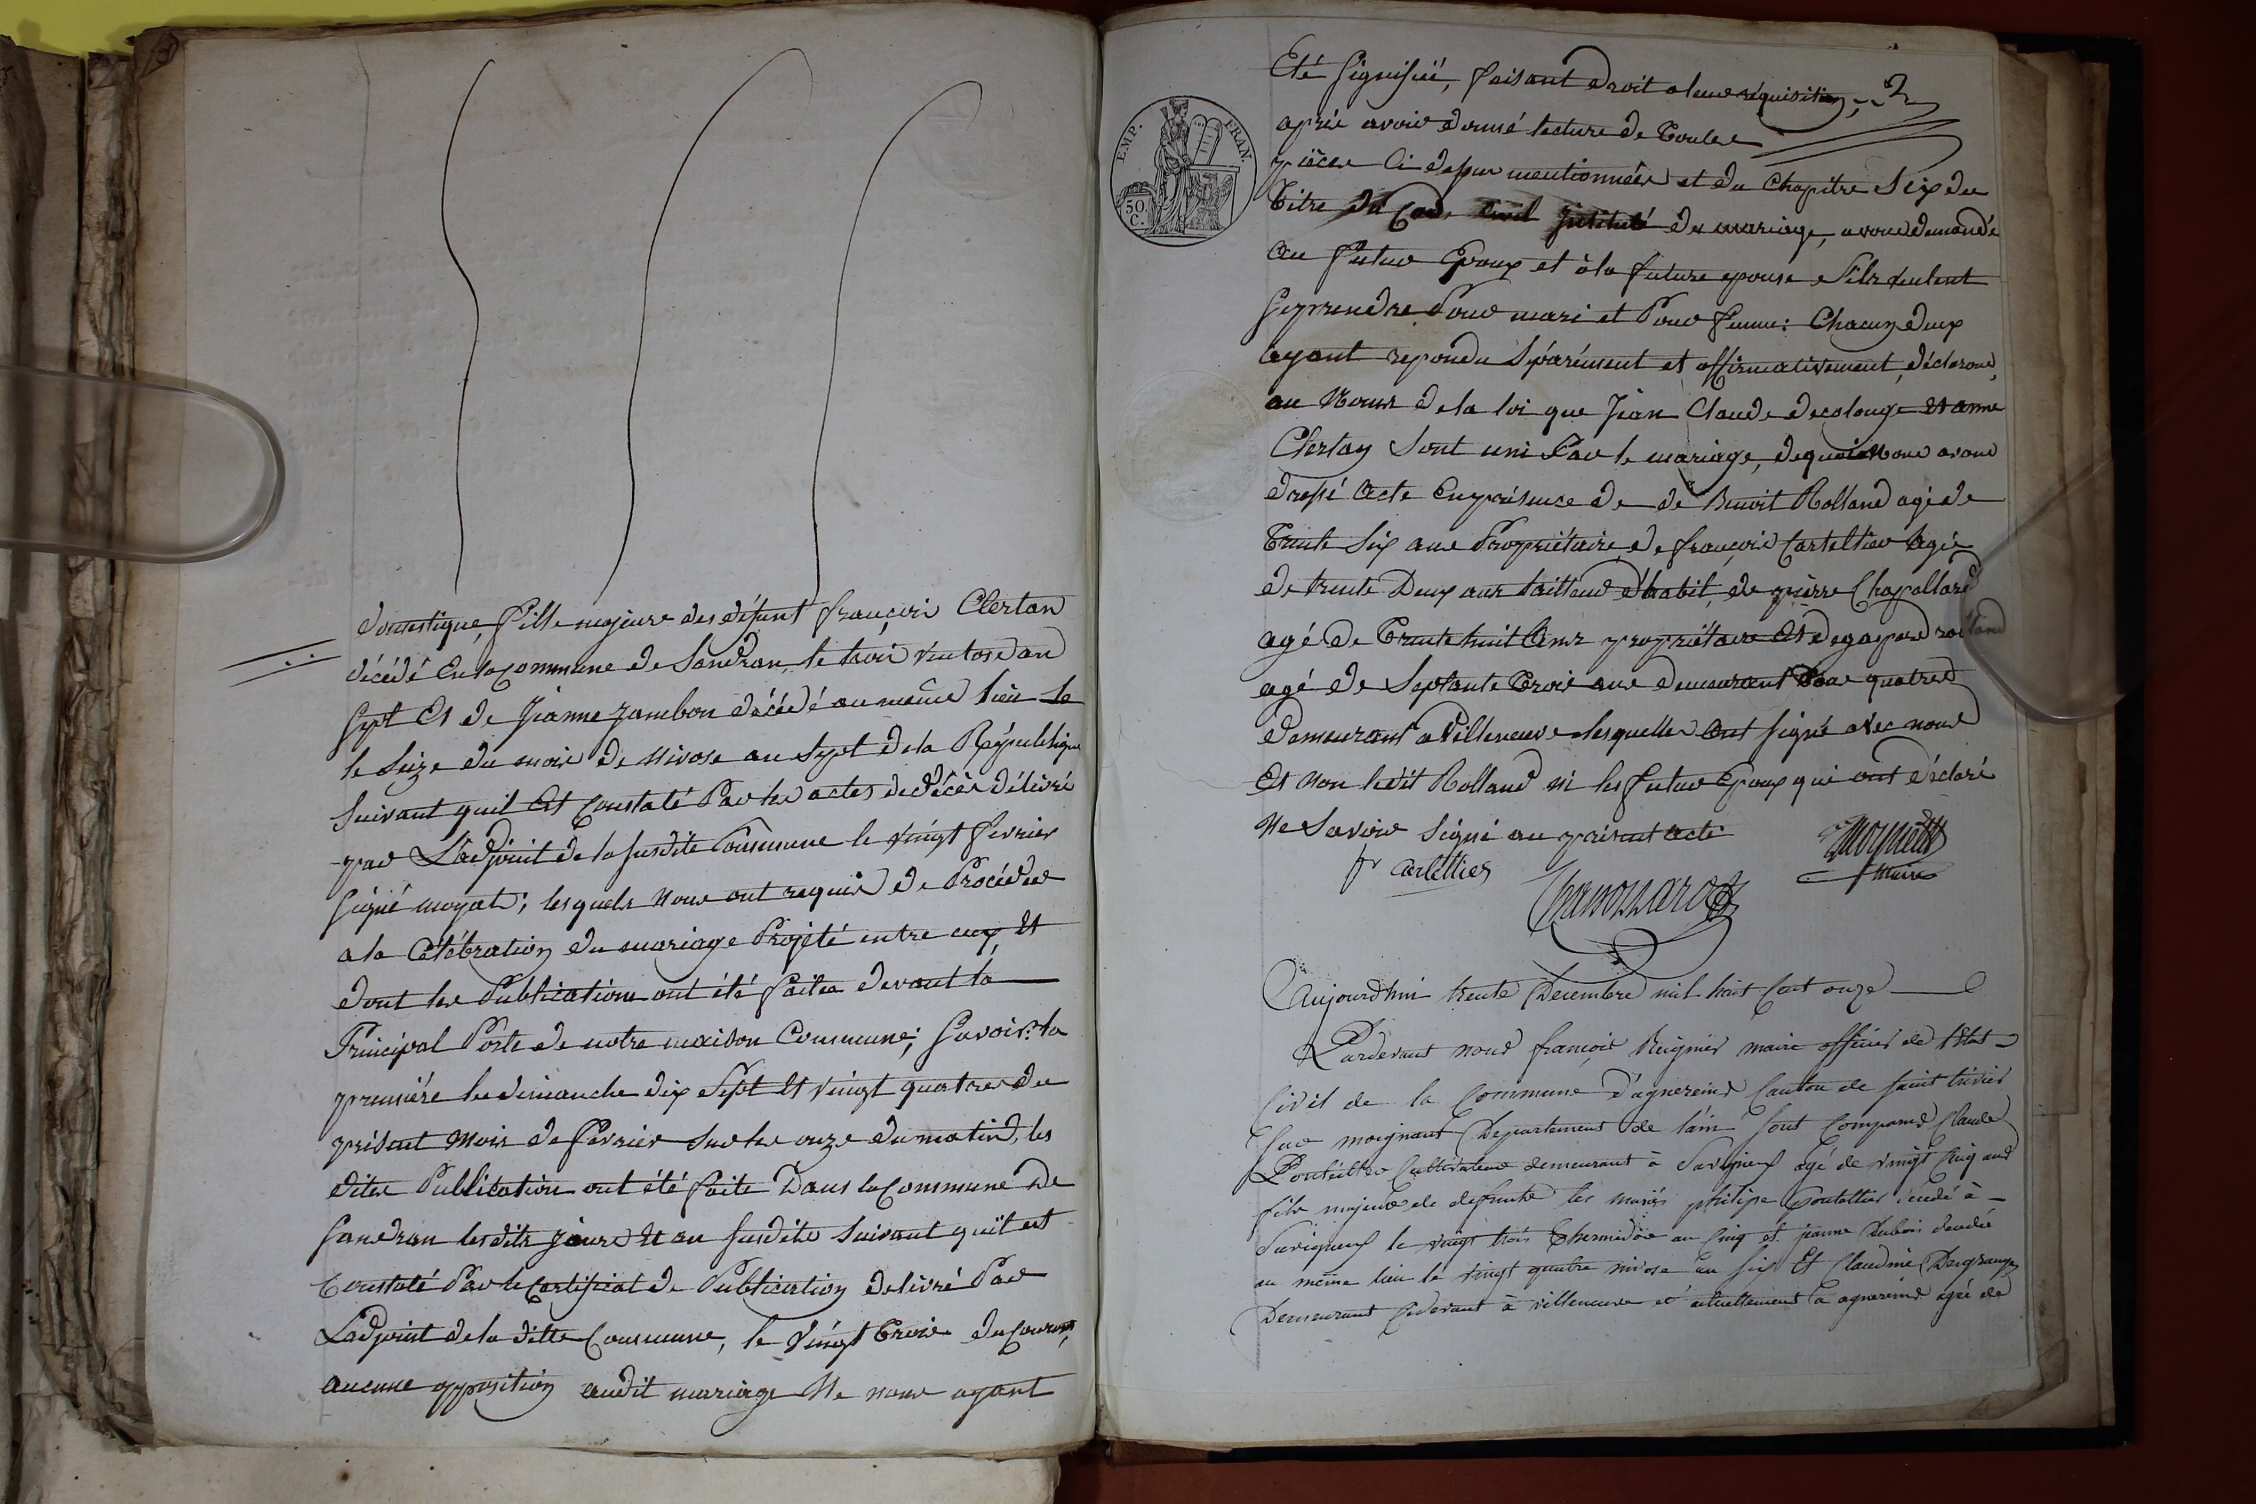 domestique, fille majeure des défunt françois Clertan
décédé En la Commune de Sandran, le trois Ventose an
Sept Et de Jeanne Jambon décédé au même lieu le
le Seize du mois de Nivose an Sept de la République
Suivant quil Est Constaté Par les actes de décès délivré
par L'adjoint de la susdite Commune le vingt fevrier
signé moyat; lesquels Nous ont requis de Procéder
a la Célébration du mariage Projeté entre eux, Et
dont les Publications ont été faites devant la
Principal Porte de notre maison Commune; Savoir: la
première les dimanche dix Sept Et vingt quatre du
présent Mois de fevrier sur les onze du matin, les
dites Publication ont été faite Dans la Commune De
Sandran lesdits jours Et an susdits Suivant quil est
Constaté Par le Certificat de Publication delivré Par
L'adjoint de la ditte Commune, le Vingt Trois du Courant,
aucune opposition audit mariage Ne nous ayant
EMP. FRAN.
50 C.
2
Eté Signifiéé, faisant Droit a leur réquisition;
après avoir donné lecture de Toutes
pièces Ci dessus mentionnées et du Chapitre Six du
Titre du Code Civil Intitulé du mariage, avons demandé
au futur Epoux et à la future epouse s'ils veulent
se prendre Pour mari et Pour femme: Chacun d'eux
ayant repondu Séparément et affirmativement, déclarons
au Noms de la loi que Jean Claude decolonge Et anne
Clertan Sont uni Par le mariage, de quoi Nous avons
dressé Acte En présence de de Benoit Rolland agé de
Trente Six ans Propriétaire, de françois Carteltier Agé
de trente Deux ans tailleur d'habit, de pierre Chapollard
agé de Trente huit Ans propriétaire Et de gaspard rolland
agé de Septante Trois ans demeurant Tous quatre
demeurant a Villeneuve lesquelles ont signé avec nous
Et Non ledit Rolland ni les futur Epoux qui ont déclaré
Ne Savoir Signé au présent acte
fr cartellier
maire
Aujourd'hui trente Decembre mil huit Cent onze
Pardevant nous françois Reignier maire officier de l'Etat
Civil de la Commune d'agnereins Canton de saint trivier
Sur moignant Departement de l'ain sont Comparus Claude
Cultivateur demeurant à Savigneux agé de vingt Cinq ans
fils majeur de defunts les mariés philipe décédé à
Savigneux le vingt trois thermidor an Cinq et jeanne Dubois décédée
au même lieu le vingt quatre nivose an six Et Claudine Desgranges
Demeurant Cidevant à villeneuve et actuellement à agnereins agée de